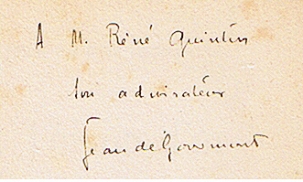 A M. Réné Quinton
son admirateur
Jean de Gourmont